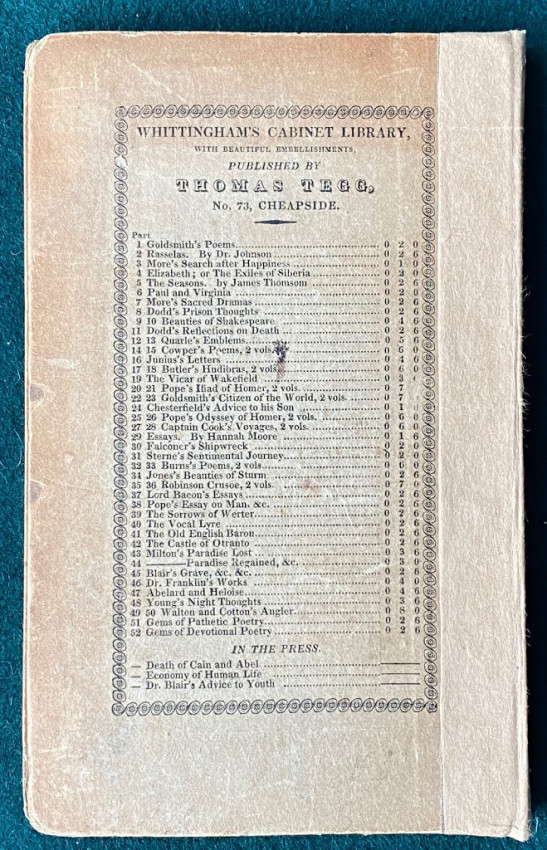 WHITTINGHAM'S CABINET LIBRARY,
WITH BEAUTIFUL EMBELLISHMENTS,
PUBLISHED BY
THOMAS TEGG,
No. 73, CHEAPSIDE.
Part
1 Goldsmith's Poems 0 2 0
2 Rasselas. By Dr. Johnson 0 2 6
3 More's Search after Happiness 0 1 0
4 Elizabeth; or The Exiles of Siberia 0 2 0
5 The Seasons. by James Thomsom 0 2 6
6 Paul and Virginia 0 2 0
7 More's Sacred Dramas 0 2 6
8 Dodd's Prison Thoughts 0 2 6
9 10 Beauties of Shakespeare 0 4 6
11 Dodd's Reflections on Death 0 2 6
12 13 Quarle's Emblems 0 5 6
14 15 Cowper's Poems, 2 vols. 0 6 0
16 Junius's Letters 0 4
17 18 Butler's Hudibras, 2 vols 0 6 0
19 The Vicar of Wakefield 0 3
20 21 Pope's Iliad of Homer, 2 vols. 0 7
22 23 Goldsmith's Citizen of the World, 2 vols. 0 7
24 Chesterfield's Advice to his Son 0 1
25 26 Pope's Odyssey of Homer, 2 vols. 0 6 0
27 28 Captain Cook's Voyages, 2 vols. 0 6 0
29 Essays. By Hannah Moore 0 1 6
30 Falconer's Shipwreck 0 2 0
31 Sterne's Sentumental Journey 0 2
32 33 Burns's Poems, 2 vols. 0 6 0
34 Jones's Beauties of Sturm 0 2 6
35 36 Robinson Crusoe, 2 vols. 0 7 0
37 Lord Bacon's Essays 0 2 6
38 Pope's Essay on Man. &c. 0 2 6
39 The Sorrows of Werter 0 2 6
40 The Vocal Lyre 0 2 6
41 The Old English Baron 0 2 6
42 The Castle of Otranto 0 2 6
43 Milton's Paradise Lost 0 3 6
44 ——— Paradise Regained, &c. 0 3 6
45 Blair's Grave, &c. &c. 0 2 6
46 Dr. Franklin's Works 0 4 0
47 Abelard and Heloise 0 4 6
48 Young's Night Thoughts 0 3 6
49 50 Walton and Cotton's Angler 0 8 0
51 Gems of Pathetic Poetry 0 2 6
52 Gems of Devotional Poetry 0 2 6
IN THE PRESS.
— Death of Cain and Abel
— Economy of Human Life
— Dr. Blair's Advice to Youth